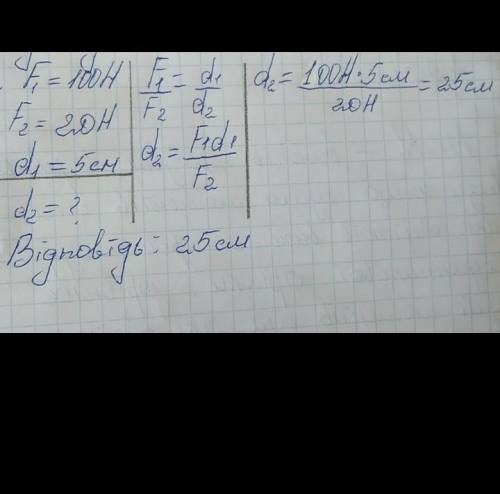 F₁ = 100Н
F₂ = 20Н
d₁ = 5см
d₂ = ?
F₁/F₂ = d₁/d₂
d₂ = F₁d₁/F₂
d₂ = 100Н·5см/20Н = 25см
Відповідь: 25см